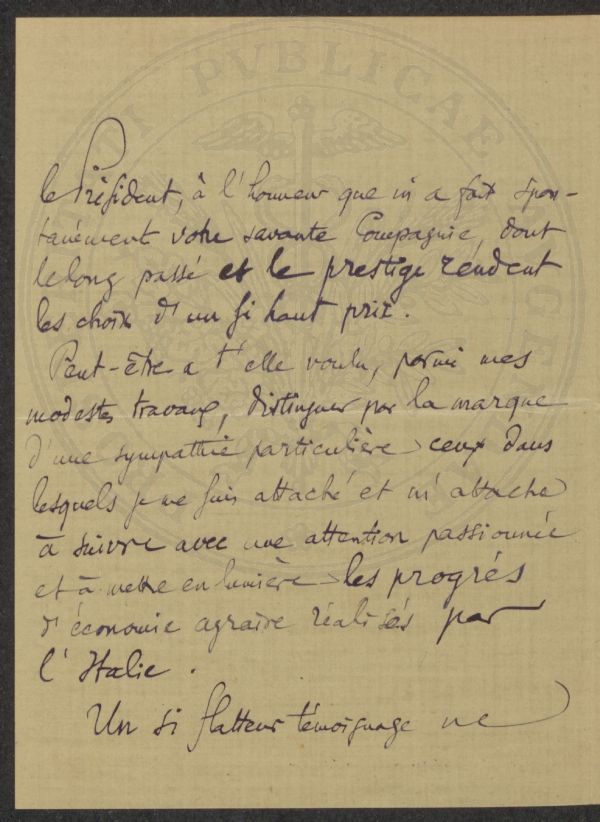 PVBLICAE
le Président, à l'honneur que m'a fait spon-
tanément votre savante Compagnie, dont
le long passé et le prestige rendent
les choix d'un si haut prix.
Peut-être a t'elle voulu, parmi mes
modestes travaux, distinguer par la marque
d'une sympathie particulière ceux dans
lesquels je me suis attaché et m'attache
à suivre avec une attention passionnée
et à mettre en lumière les progrès
d'économie agraire réalisés par
l'Italie.
Un si flatteur témoignage ne